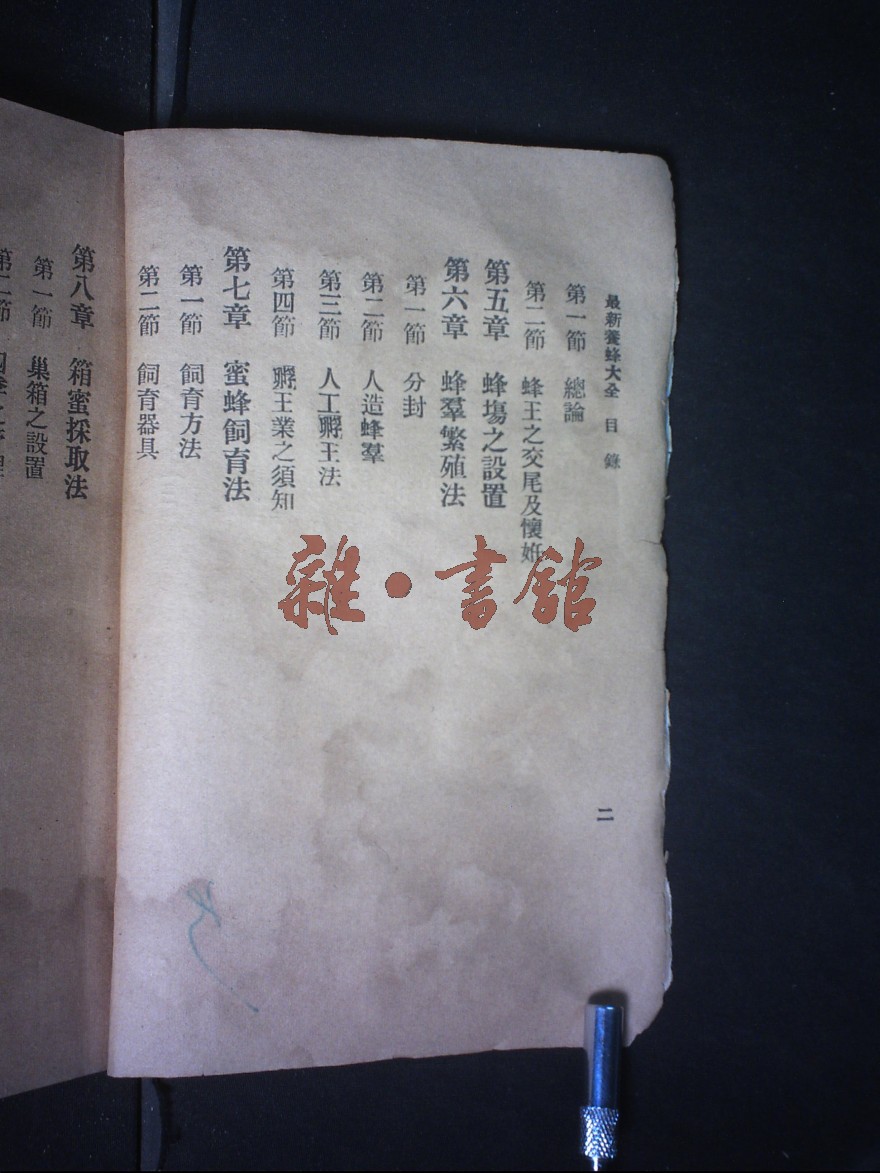 最新養蜂大全 目錄
第一節 總論
第二節 蜂王之交尾及懷妊
第五章 蜂塲之設置
第六章 蜂羣繁殖法
第一節 分封
第二節 人造蜂羣
第三節 人工孵王法
第四節 孵王業之須知
第七章 蜜蜂飼育法
第一節 飼育方法
第二節 飼育器具
二
第八章 箱蜜採取法
第一節 巢箱之設置
第二節
雜·書館